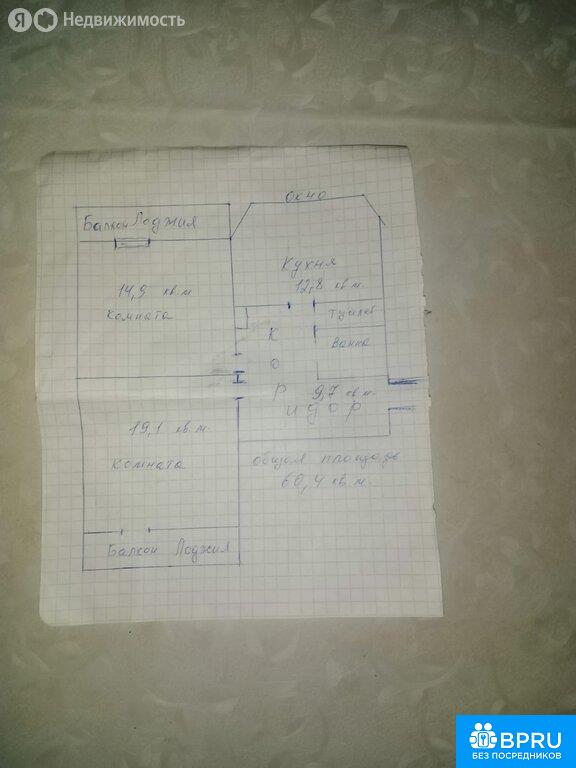 Я Недвижимость
Окно
Балкон Лоджия
Кухня
12,8 кв.м.
14,9 кв.м
Комната
Туалет
Ванна
К
О
Р
9,7 кв.м.
идор
19,1 кв.м.
Комната
общая площадь
60,4 кв.м.
Балкон Лоджия
BPRU
БЕЗ ПОСРЕДНИКОВ